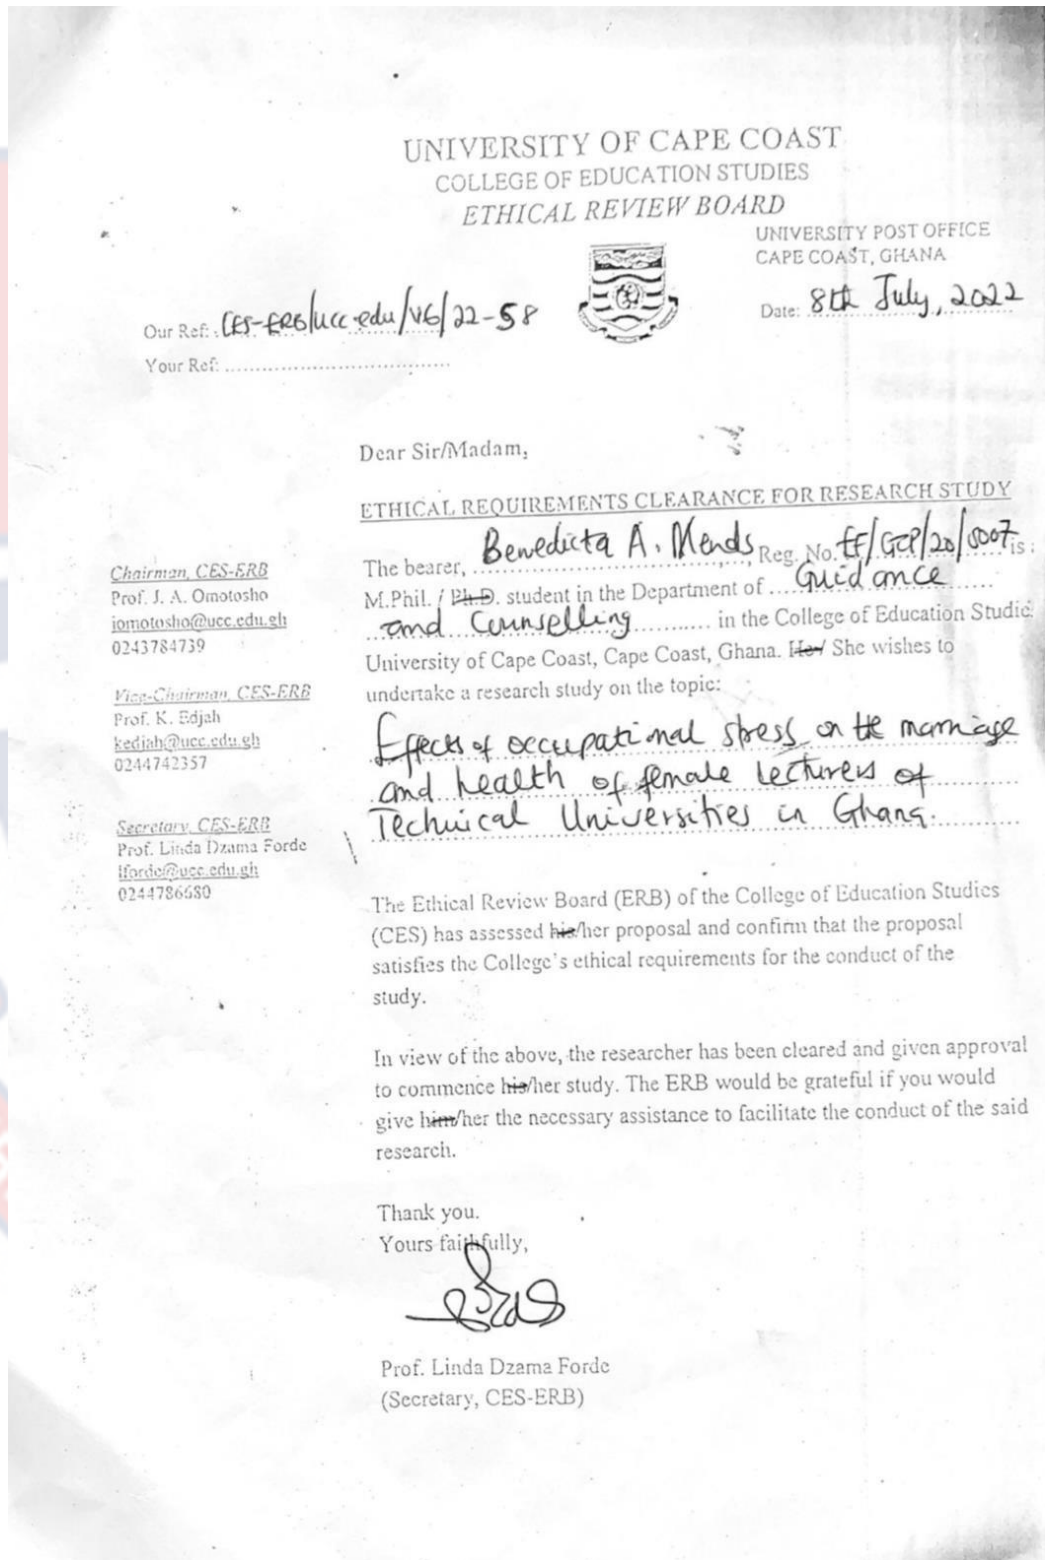 UNIVERSITY OF CAPE COAST
COLLEGE OF EDUCATION STUDIES
ETHICAL REVIEW BOARD
UNIVERSITY POST OFFICE
CAPE COAST, GHANA
Date: 8th July, 2022
Our Ref: CES-ERB/ucc.edu/V6/22-58
Your Ref: ....................................
Dear Sir/Madam,
ETHICAL REQUIREMENTS CLEARANCE FOR RESEARCH STUDY
Chairman, CES-ERB
Prof. J. A. Omotosho
jomotosho@ucc.edu.gh
0243784739
Vice-Chairman, CES-ERB
Prof. K. Edjah
kedjah@ucc.edu.gh
0244742357
Secretary, CES-ERB
Prof. Linda Dzama Forde
lforde@ucc.edu.gh
0244786680
The bearer, Benedicta A. Mends, Reg. No. EF/GCP/20/0007 is
M.Phil. / Ph.D. student in the Department of Guidance
and Counselling in the College of Education Studie
University of Cape Coast, Cape Coast, Ghana. He/ She wishes to
undertake a research study on the topic:
Effects of occupational stress on the marriage
and health of female lecturers of
Technical Universities in Ghana.
The Ethical Review Board (ERB) of the College of Education Studies
(CES) has assessed his/her proposal and confirm that the proposal
satisfies the College's ethical requirements for the conduct of the
study.
In view of the above, the researcher has been cleared and given approval
to commence his/her study. The ERB would be grateful if you would
give him/her the necessary assistance to facilitate the conduct of the said
research.
Thank you.
Yours faithfully,
Prof. Linda Dzama Forde
(Secretary, CES-ERB)